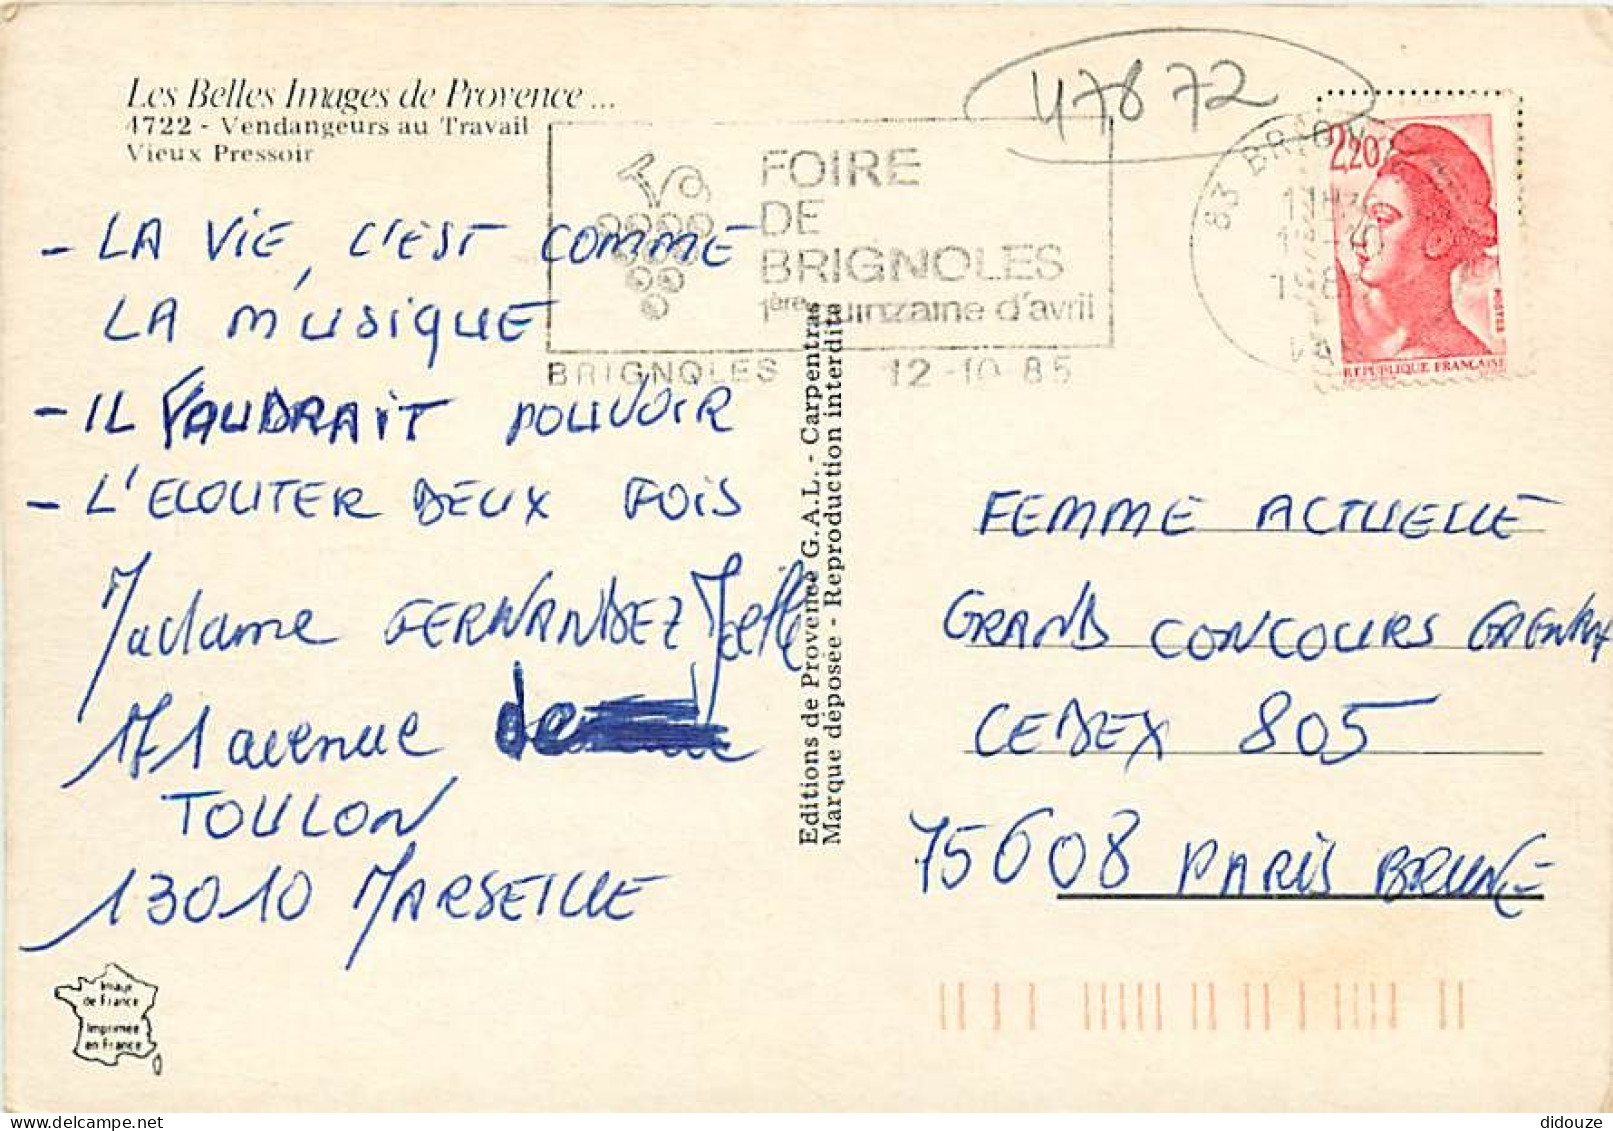 Les Belles Images de Provence ...
4722 - Vendangeurs au Travail
Vieux Pressoir
47872
FOIRE
DE
BRIGNOLES
1ère quinzaine d'avril
BRIGNOLES 12-10-85
83 BRIG
2,20
POSTES
REPUBLIQUE FRANÇAISE
- LA VIE, C'EST COMME
LA MUSIQUE
- IL FAUDRAIT POUVOIR
- L'ECOUTER DEUX FOIS
Madame FERNANDEZ Joelle
171 avenue de
TOULON
13010 MARSEILLE
Editions de Provence G.A.L. - Carpentras
Marque déposée - Reproduction interdite
FEMME ACTUELLE
GRAND CONCOURS
CEDEX 805
75608 PARIS BRUNE
Image
de France
Imprimée
en France
didouze